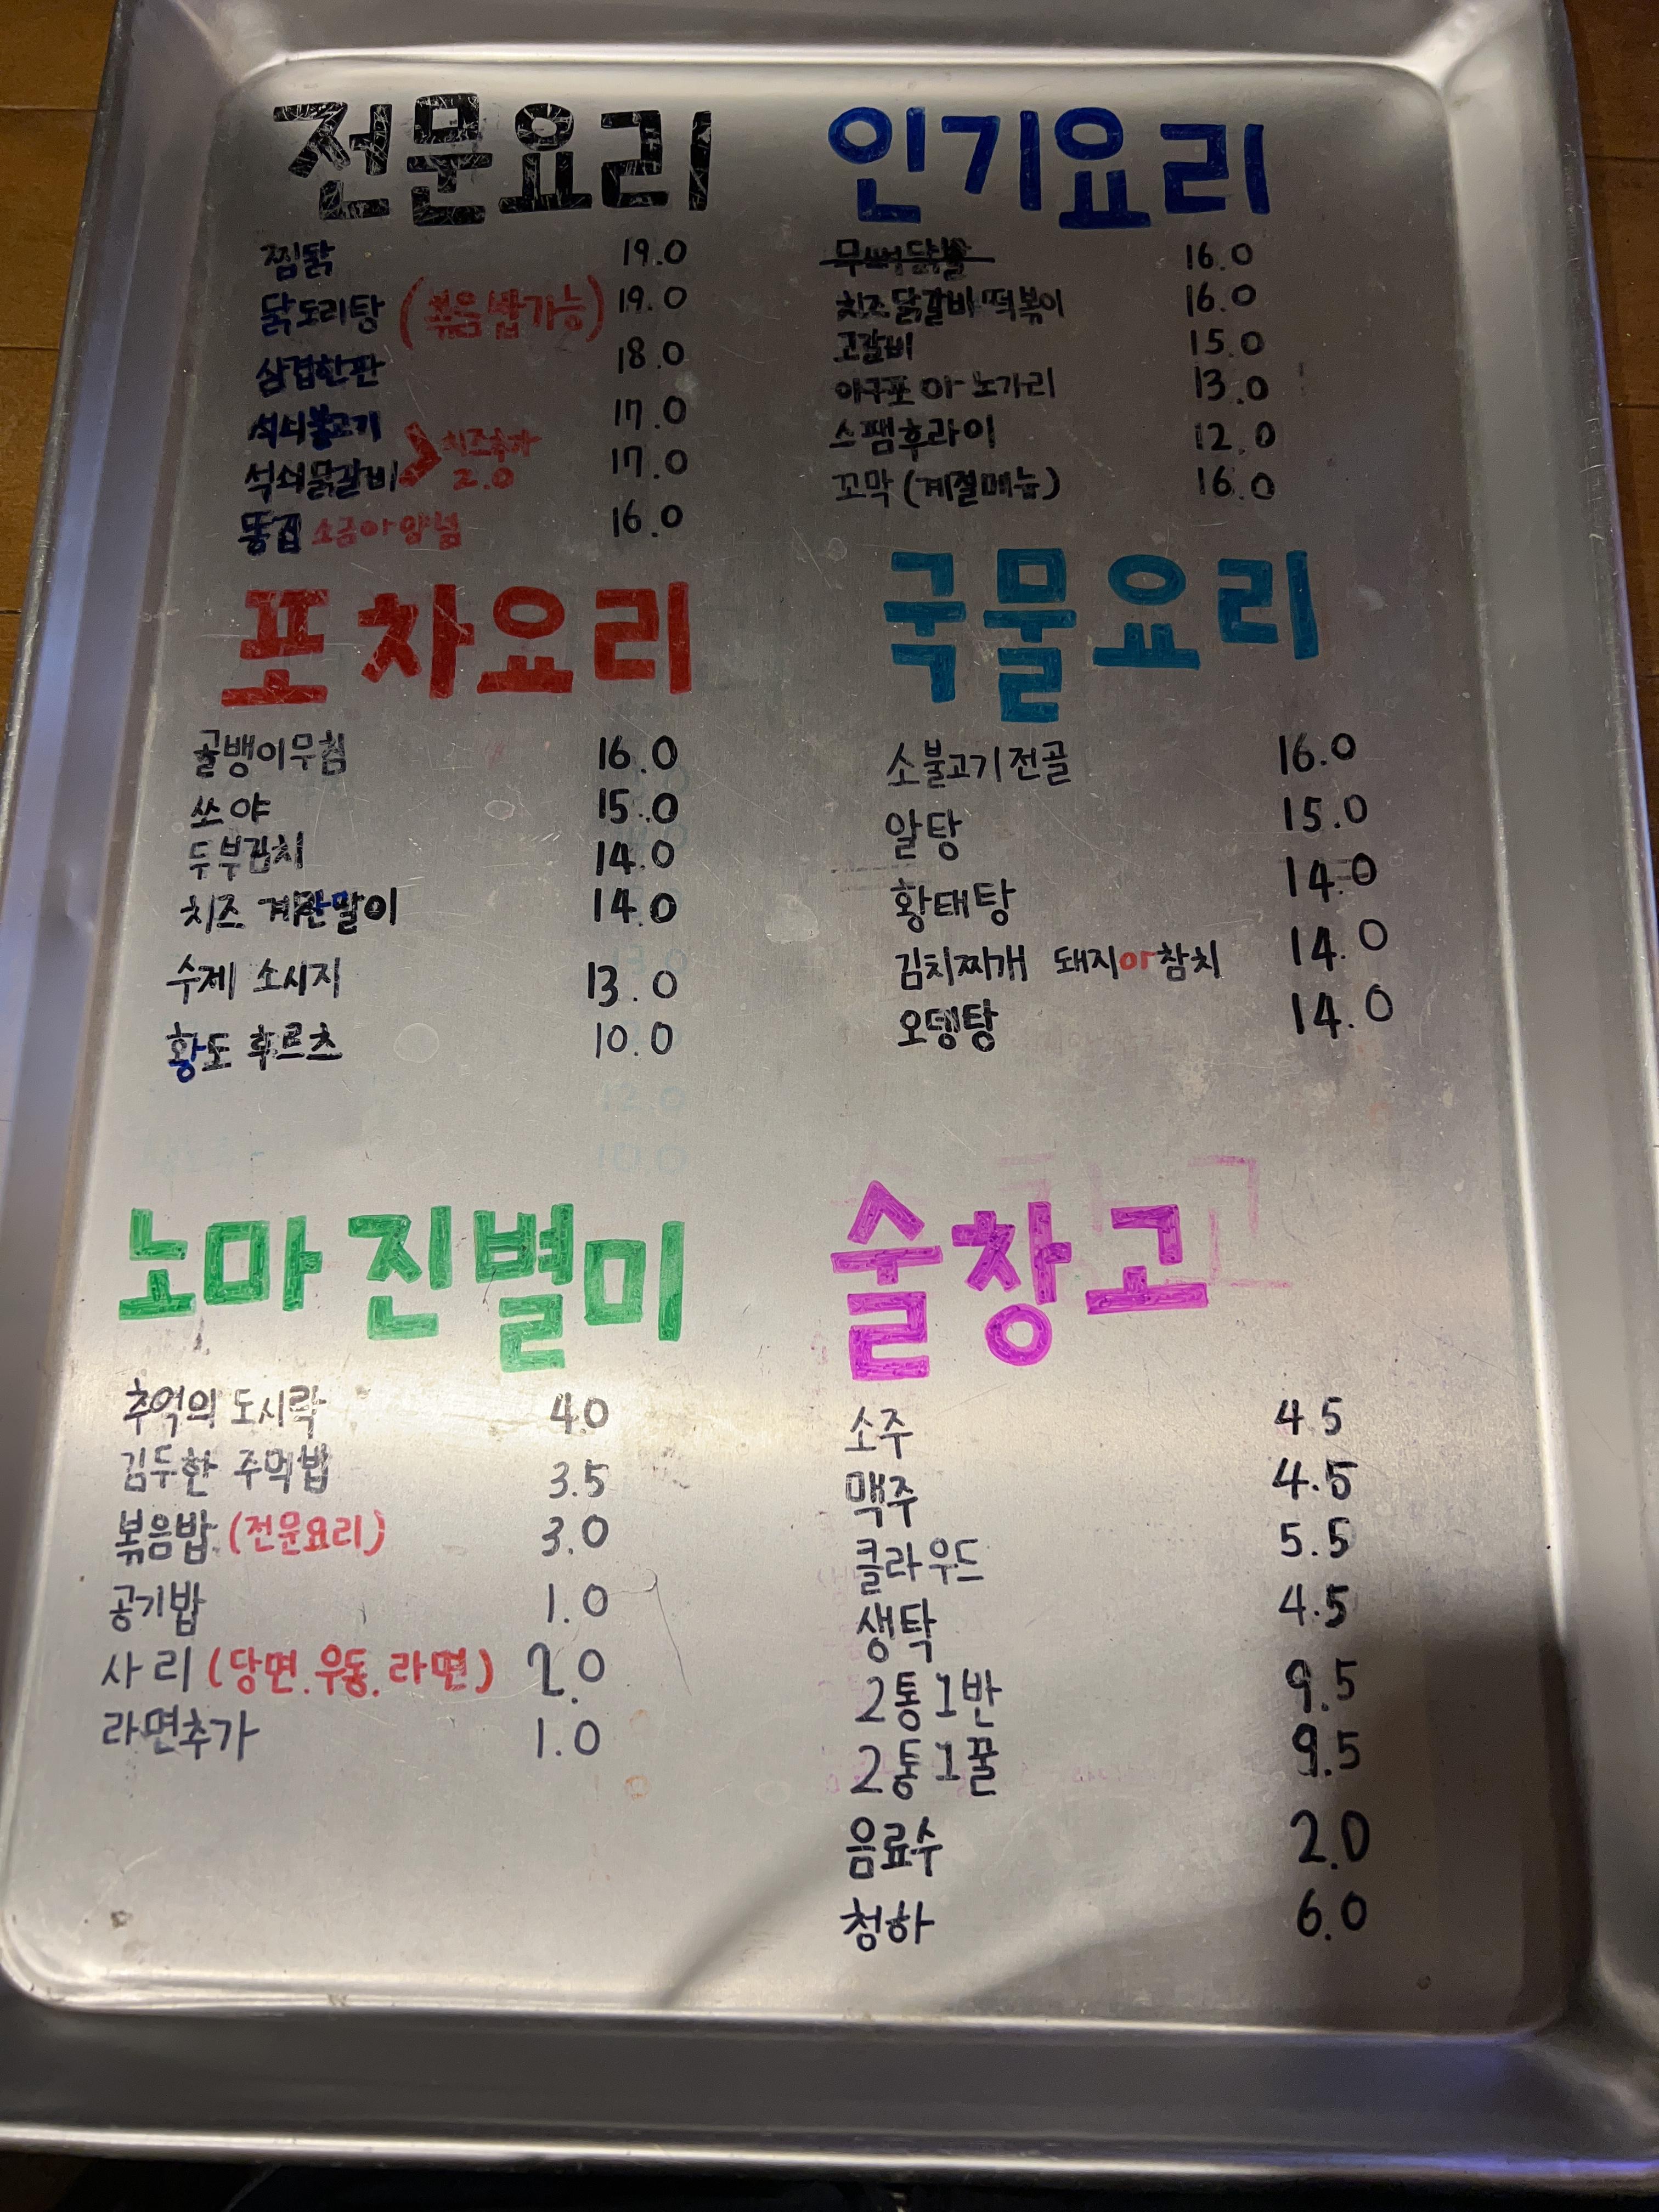 전문요리
찜닭 19.0
닭도리탕 (볶음밥가능) 19.0
삼겹한판 18.0
석쇠불고기 17.0
석쇠닭갈비 17.0
> 치즈추가 2.0
똥집 소금or양념 16.0
인기요리
무뼈닭발 16.0
치즈닭갈비떡볶이 16.0
고갈비 15.0
아구포 or 노가리 13.0
스팸후라이 12.0
꼬막(계절메뉴) 16.0
포차요리
골뱅이무침 16.0
쏘야 15.0
두부김치 14.0
치즈 계란말이 14.0
수제 소시지 13.0
황도 후르츠 10.0
국물요리
소불고기전골 16.0
알탕 15.0
황태탕 14.0
김치찌개 돼지or참치 14.0
오뎅탕 14.0
노마진별미
추억의 도시락 4.0
김두한 주먹밥 3.5
볶음밥 (전문요리) 3.0
공기밥 1.0
사리 (당면.우동.라면) 2.0
라면추가 1.0
술창고
소주 4.5
맥주 4.5
클라우드 5.5
생탁 4.5
2통1반 9.5
2통1꿀 9.5
음료수 2.0
청하 6.0